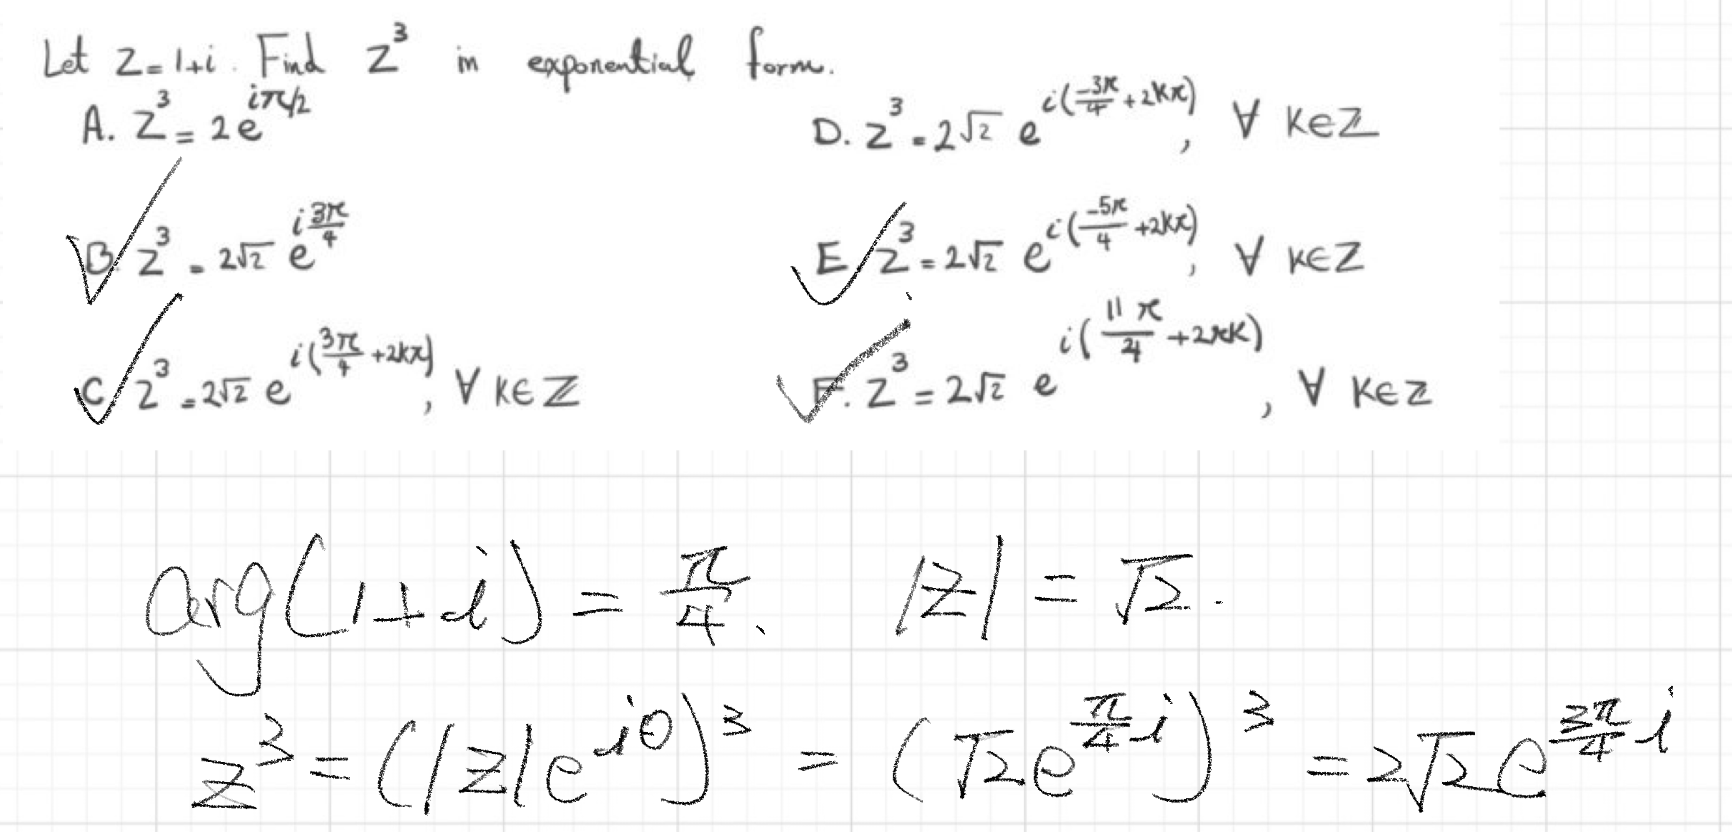 Let Z=1+i. Find Z³ in exponential form.
A. Z³ = 2e^{iπ/2}
B. Z³ = 2√2 e^{i 3π/4}
C. Z³ = 2√2 e^{i(3π/4 + 2kπ)}, ∀ k∈ℤ
D. Z³ = 2√2 e^{i(-3π/4 + 2kπ)}, ∀ k∈ℤ
E. Z³ = 2√2 e^{i(-5π/4 + 2kπ)}, ∀ k∈ℤ
F. Z³ = 2√2 e^{i(11π/4 + 2πk)}, ∀ k∈ℤ
arg(1+i) = π/4. |z| = √2.
z³ = (|z|e^{iθ})³ = (√2e^{π/4 i})³ = 2√2e^{3π/4 i}